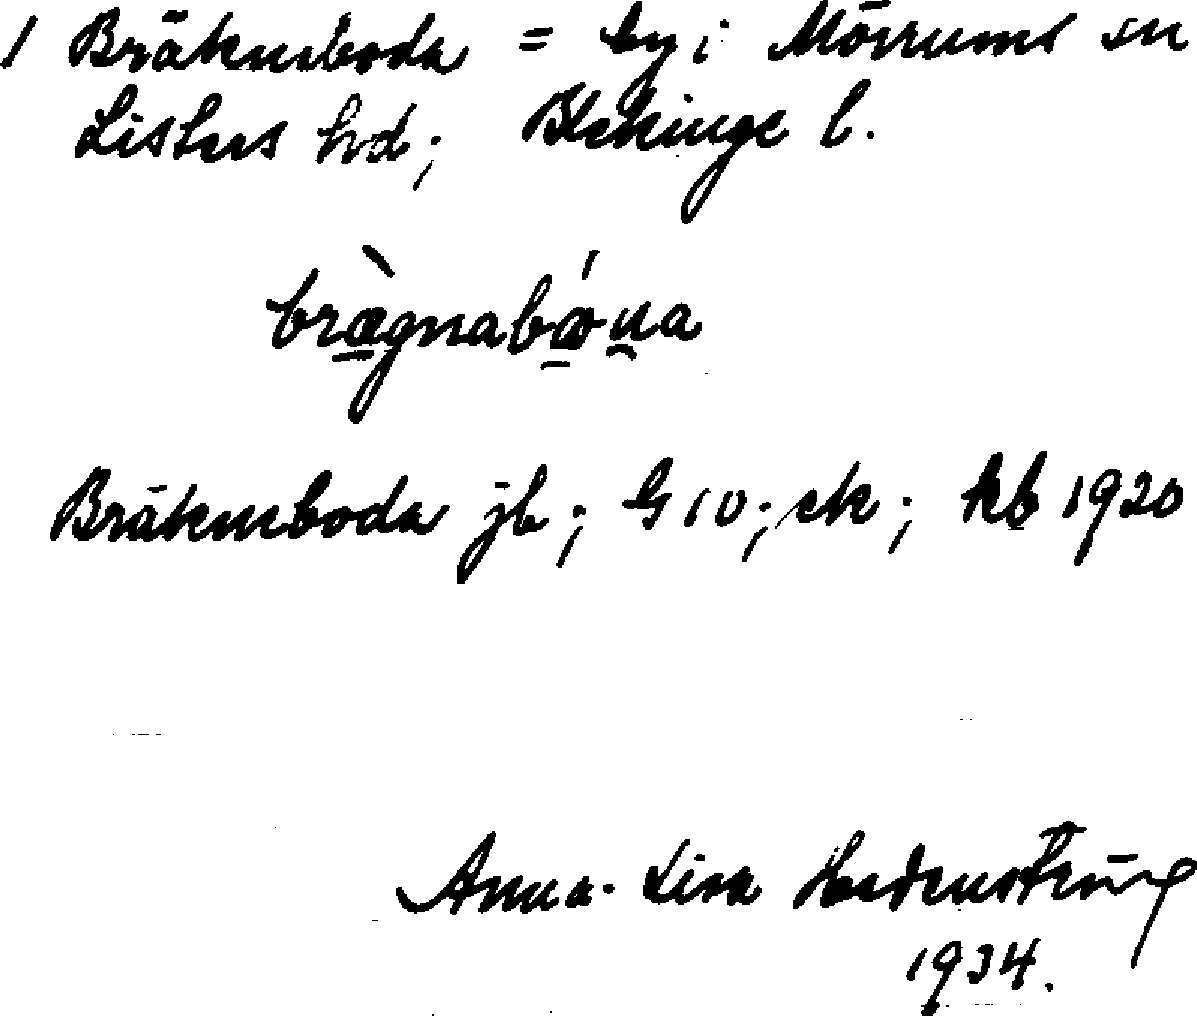 1 Bräknaboda = by i Mörrums sn
Listers hd; Blekinge l.
brægnabóua
Bräkneboda jb; G 10; ek; kb 1920
Anna-Lisa
1934.